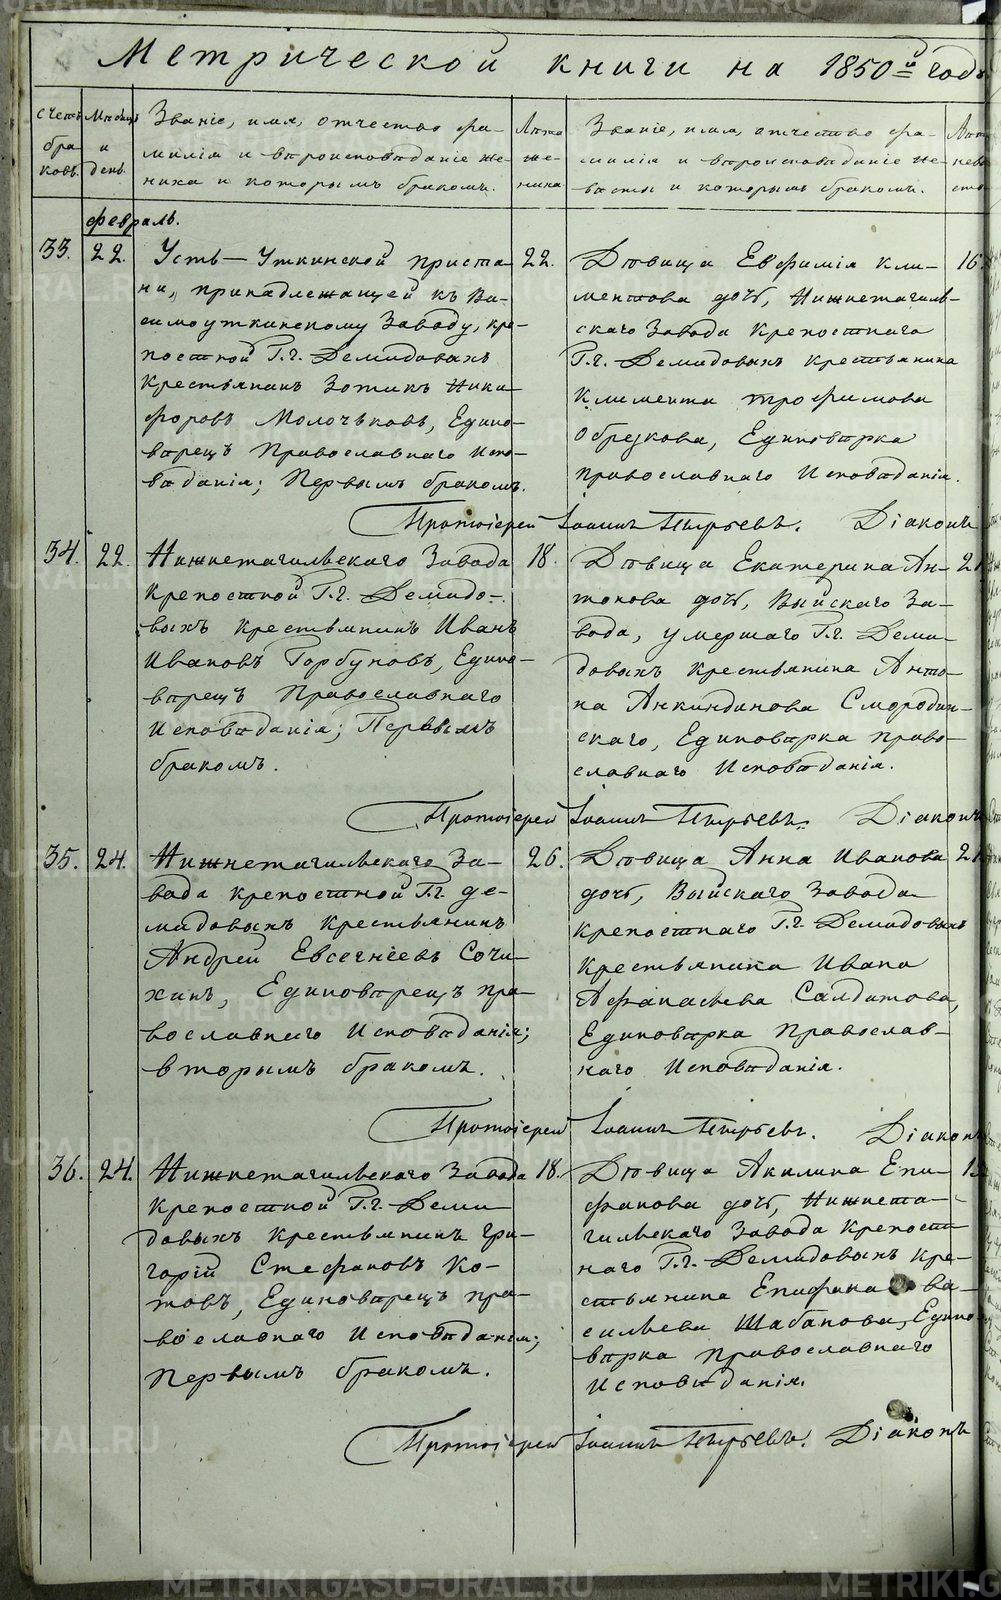 Метрической книги на 1850й годъ
Счетъ браковъ.
Мѣсяцъ и день.
Званіе, имя, отчество фа-
милія и вѣроисповѣданіе же-
ниха и которымъ бракомъ.
Лѣта
же-
ниха
Званіе, имя, отчество фа-
милія и вѣроисповѣданіе не-
вѣсты и которымъ бракомъ.
Февраль.
33.
22.
Усть-Уткинской приста-
ни, принадлежащей къ Ви-
симоуткинскому Заводу, кре-
постной Г.г. Демидовыхъ
Крестьянинъ Зотикъ Ники-
форовъ Молочковъ, Едино-
вѣрецъ Православнаго Испо-
вѣданія; Первымъ бракомъ.
22.
Дѣвица Евфимія Кли-
ментова дочь, Нижнетагиль-
скаго Завода Крепостнаго
Г.г. Демидовыхъ крестьянина
Климента Трофимова
Обрезкова, Единовѣрка
православнаго Исповѣданія.
16.
Протоіерей Іоаннъ Пырьевъ. Діаконъ
34.
22.
Нижнетагильскаго Завода
Крепостной Г.г. Демидо-
выхъ крестьянинъ Иванъ
Ивановъ Горбуновъ, Едино-
вѣрецъ Православнаго
Исповѣданія; Первымъ
бракомъ.
18.
Дѣвица Екатерина Ан-
тонова дочь, Выйскаго За-
вода, умершаго Г.г. Деми-
довыхъ крестьянина Анто-
на Анкиндинова Смородин-
скаго, Единовѣрка право-
славнаго Исповѣданія.
Протоіерей Іоаннъ Пырьевъ. Діаконъ
35.
24.
Нижнетагильскаго За-
вода крепостной Г.г. Де-
мидовыхъ крестьянинъ
Андрей Евсегнѣевъ Сочи-
хинъ, Единовѣрецъ пра-
вославнаго Исповѣданія;
вторымъ бракомъ.
26.
Дѣвица Анна Иванова
дочь, Выйскаго Завода
крепостнаго Г.г. Демидовыхъ
Крестьянина Ивана
Афанасьева Салдатова,
Единовѣрка Православ-
наго Исповѣданія.
Протоіерей Іоаннъ Пырьевъ. Діаконъ
36.
24.
Нижнетагильскаго Завода
Крепостной Г.г. Деми-
довыхъ крестьянинъ Гри-
горій Стефановъ Ко-
товъ, Единовѣрецъ пра-
вославнаго Исповѣданія;
Первымъ бракомъ.
18.
Дѣвица Акилина Епи-
фанова дочь, Нижнета-
гильскаго Завода крепост-
наго Г.г. Демидовыхъ кре-
стьянина Епифана Ва-
сильева Шабанова, Едино-
вѣрка православнаго
Исповѣданія.
Протоіерей Іоаннъ Пырьевъ. Діаконъ
METRIKI.GASO-URAL.RU